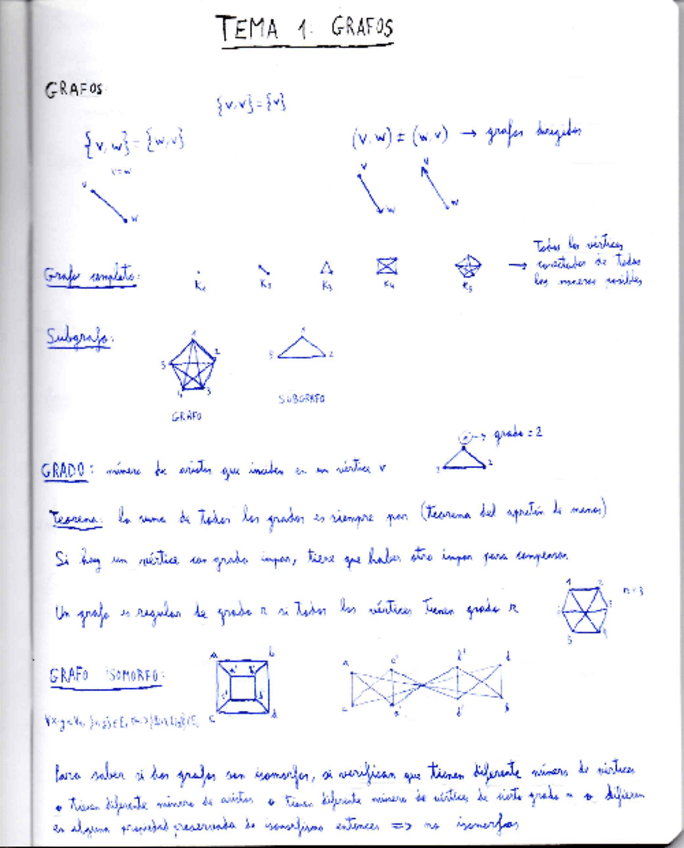 TEMA 1: GRAFOS
GRAFOS
{v,v}={v}
{v,w}={w,v}
(v,w) ≠ (w,v) → grafos dirigidos
v=w
v
v
w
w
w
Grafo completo:
K1
K2
K3
K4
K5
→ Todos los vértices
conectados de todas
las maneras posibles
Subgrafo:
1
2
3
5
1
2
GRAFO
SUBGRAFO
→ grado = 2
GRADO: número de aristas que inciden en un vértice v
Teorema: la suma de todos los grados es siempre par (teorema del apretón de manos)
Si hay un vértice con grado impar, tiene que haber otro impar para compensar.
Un grafo es regular de grado r si todos los vértices tienen grado r
r=3
GRAFO ISOMORFO:
a
b
c
d
Para saber si dos grafos son isomorfos, si verifican que tienen diferente número de vértices
o tienen diferente número de aristas o tienen diferente número de vértices de cierto grado o difieren
en alguna propiedad preservada de isomorfismo entonces => no isomorfos